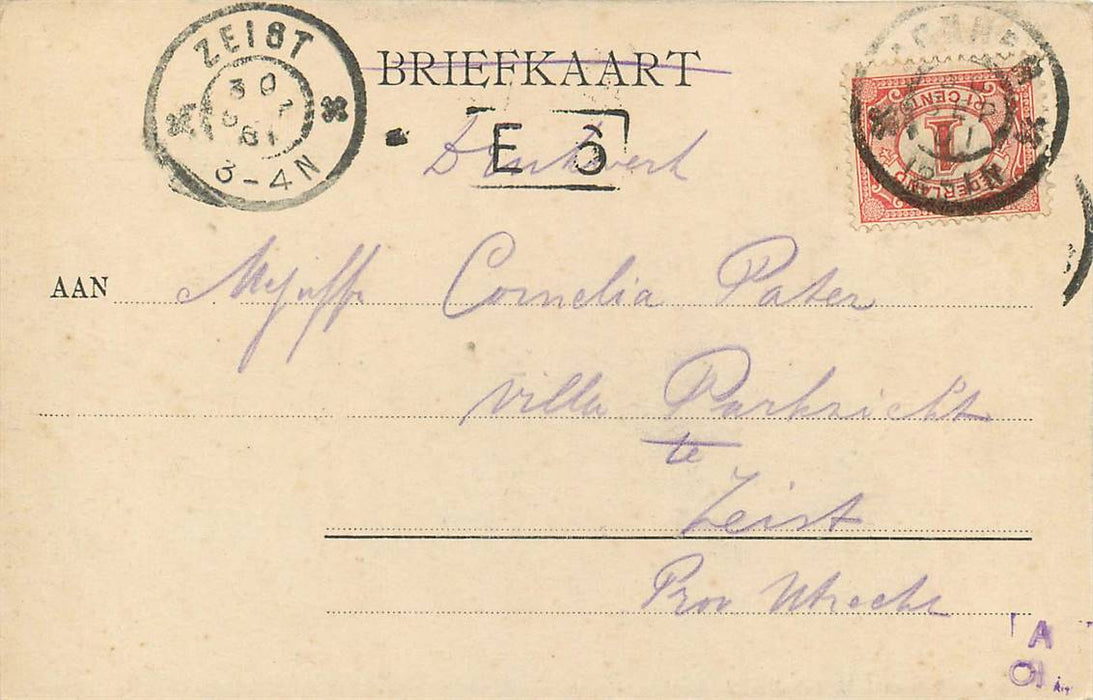 ZEIST
30
3-4N
BRIEFKAART
Drukwerk
E 6
1
CENT
NEDERLAND
AAN Mejuffr Cornelia Pater
Villa Parkzicht
te
Zeist
Prov Utrecht
A